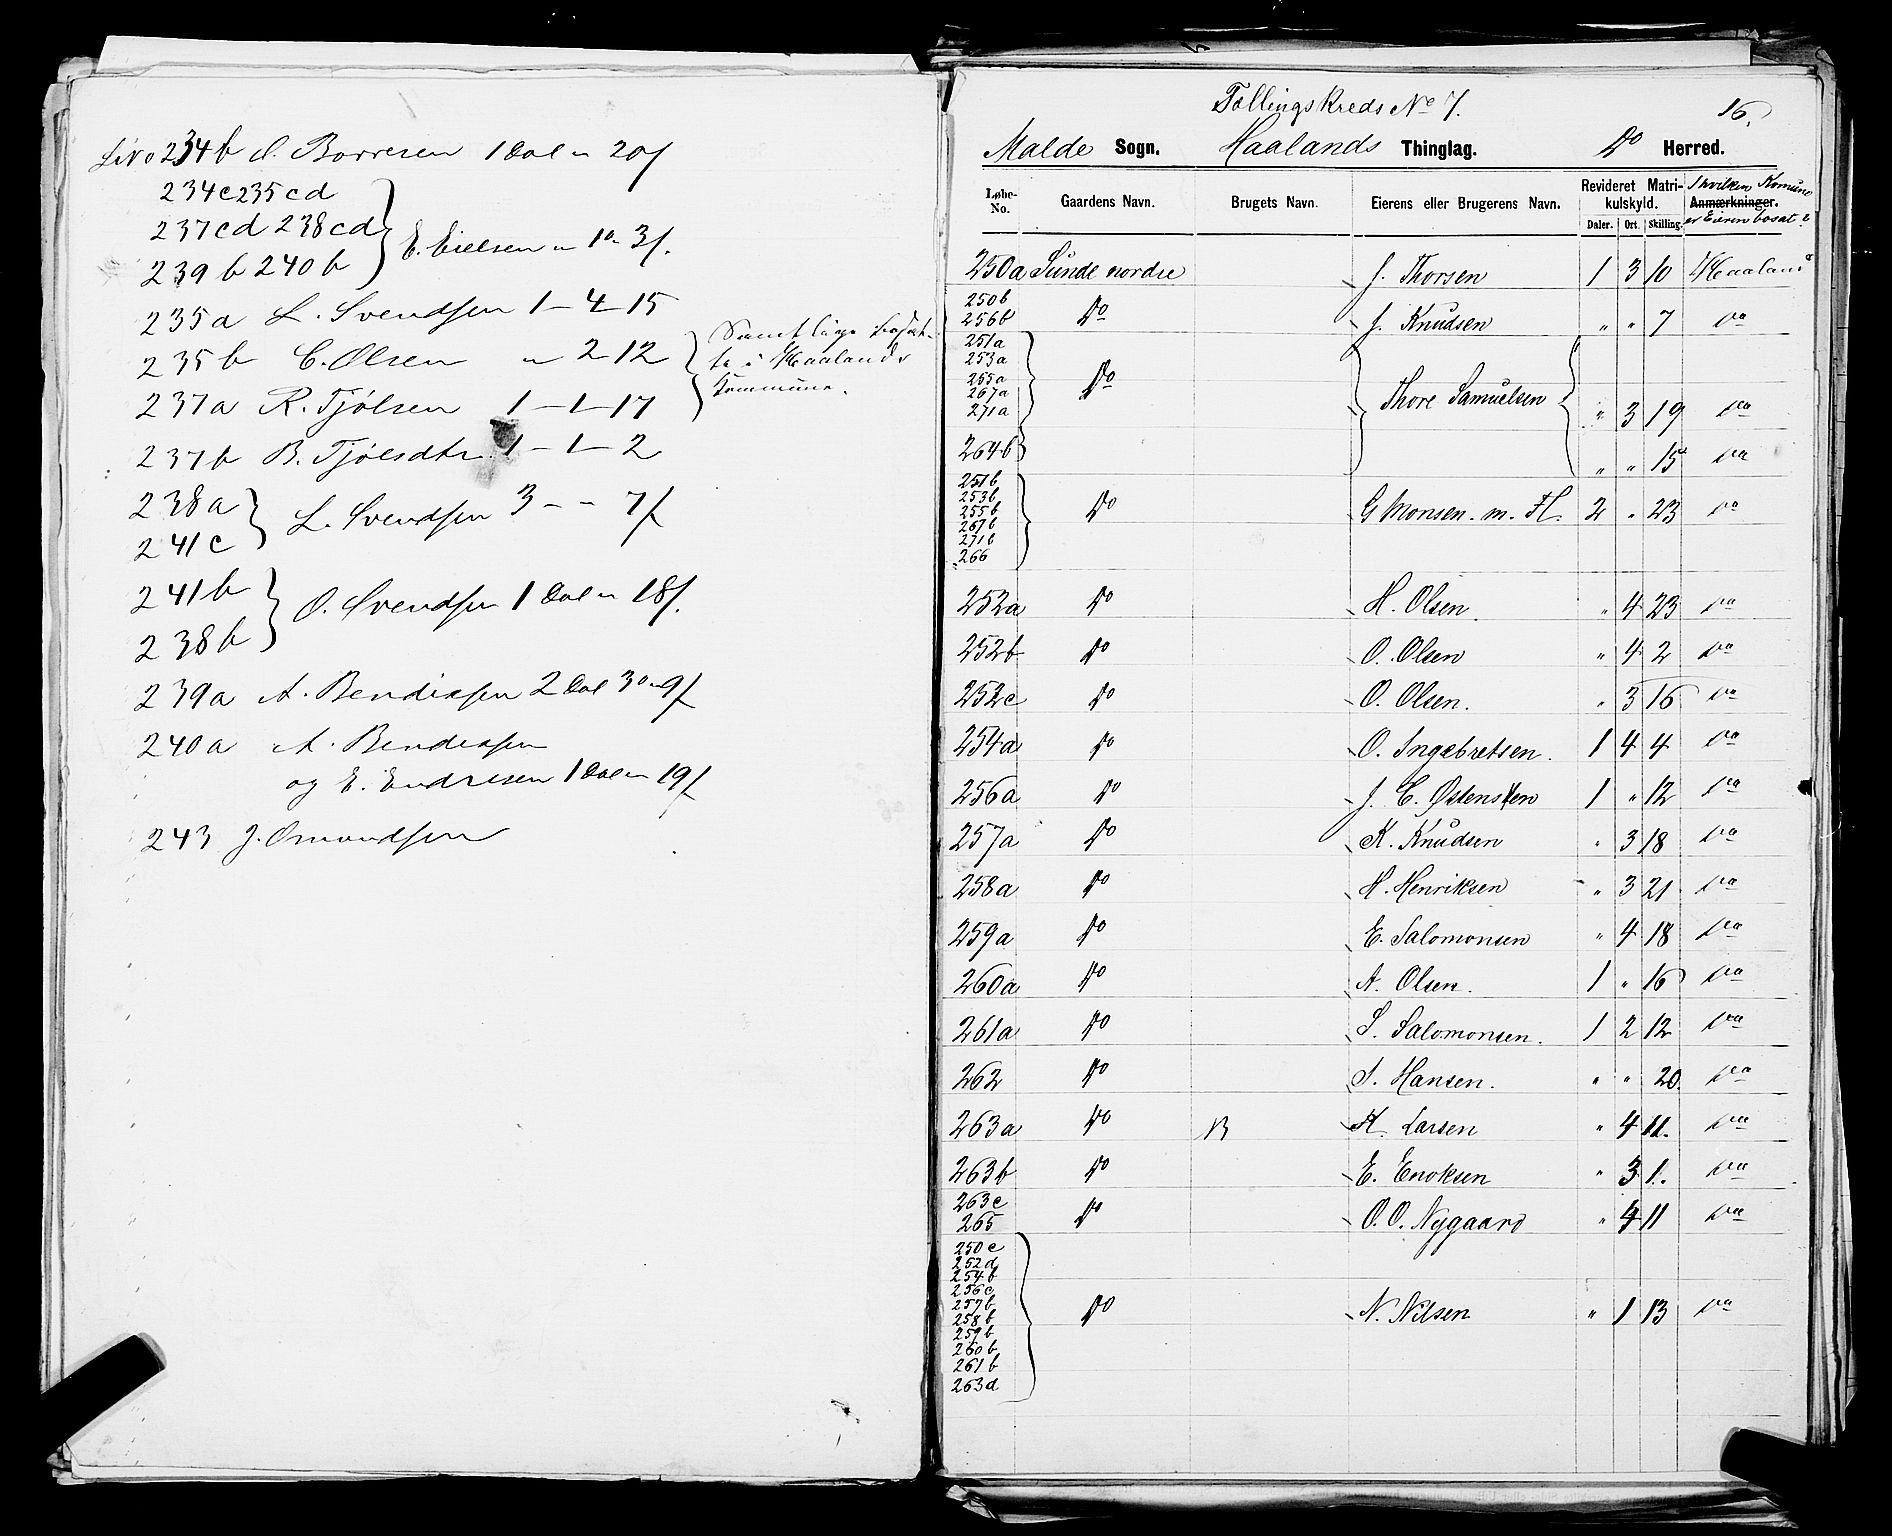 234b O. Borresen 1 Dal " 20 f
234c 235cd
237cd 238cd
239b 240b E. Eielsen " 1 o 3 f.
235a L. Svendsen 1 – 4 – 15
235b C. Olsen " – 2 – 12
237a R. Tjølsen 1 – 1 – 17
Samtlige bosat-
te i Haalands
Kommune.
237b B. Tjølsdtr. 1 – 1 – 2
238a
241c L. Svendsen 3 – " 7 f
241b
238b O. Svendsen 1 Dal " 18 f.
239a A. Bendixsen 2 Dal 3 o 9 f
240a A. Bendixsen
og E. Endresen 1 Dal " 19 f
243 J. Omundsen
Tællingskreds No 7.
16.
Malde Sogn. Haalands Thinglag. Do Herred.
Løbe-No. Gaardens Navn. Brugets Navn. Eierens eller Brugerens Navn. Revideret Matrikulskyld. Daler. Ort. Skilling. Anmærkninger. I hvilken Komune er Eieren bosat?
250a Sunde nordre J. Thorsen 1 3 10 Haaland
250b
256b Do J. Knudsen " " 7 Do
251a
253a
255a
267a
271a Do Thore Samuelsen " 3 19 Do
264b " " 15 Do
251b
253b
255b
267b
271b
266 Do G Monsen. m. Fl. 2 " 23 Do
252a Do H. Olsen. " 4 23 Do
252b Do O. Olsen " 4 2 Do
252c Do O. Olsen. " 3 16 Do
254a Do O. Ingebretsen. 1 4 4 Do
256a Do J. C. Østensen 1 " 12 Do
257a Do K. Knudsen " 3 18 Do
258a Do H. Henriksen " 3 21 Do
259a Do E. Salomonsen " 4 18 Do
260a Do A. Olsen. 1 " 16 Do
261a Do S. Salomonsen. 1 2 12 Do
262 Do S. Hansen. " " 20. Do
263a Do B K. Larsen " 4 11. Do
263b Do E. Enoksen " 3 1. Do
263c
265 Do O. O. Nygaard " 4 11 Do
250c
252d
254b
256c
257b
258b
259b
260b
261b
263d Do N. Nilsen " 1 13 Do